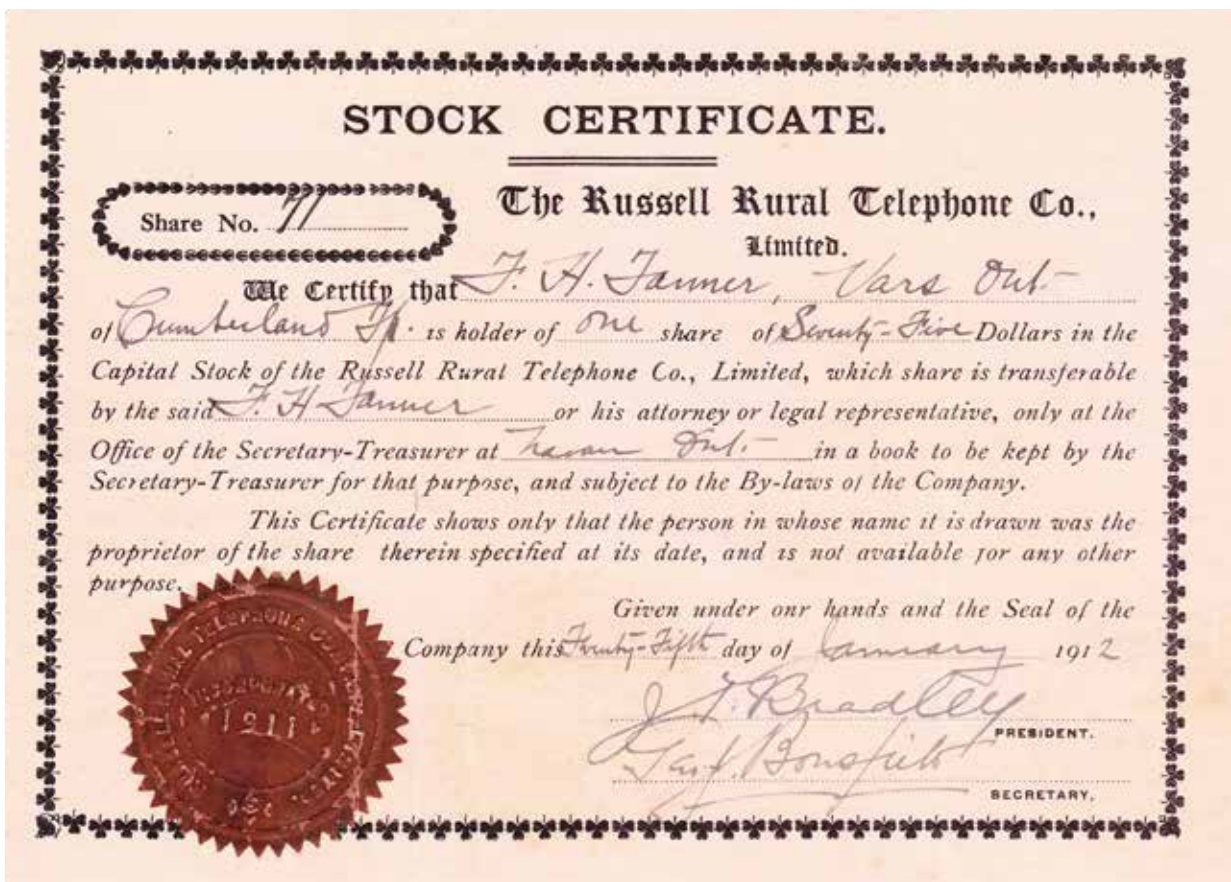 STOCK CERTIFICATE.
Share No. 71
The Russell Rural Telephone Co.,
Limited.
We Certify that F. H. Tanner, Vars Ont.
of Cumberland Tp. is holder of one share of Seventy-Five Dollars in the
Capital Stock of the Russell Rural Telephone Co., Limited, which share is transferable
by the said F. H Tanner or his attorney or legal representative, only at the
Office of the Secretary-Treasurer at Navan Ont. in a book to be kept by the
Secretary-Treasurer for that purpose, and subject to the By-laws of the Company.
This Certificate shows only that the person in whose name it is drawn was the
proprietor of the share therein specified at its date, and is not available for any other
purpose.
Given under our hands and the Seal of the
Company this Twenty-Fifth day of January 1912
Bradley
PRESIDENT.
SECRETARY.
TELEPHONE
INCORPORATED
1911